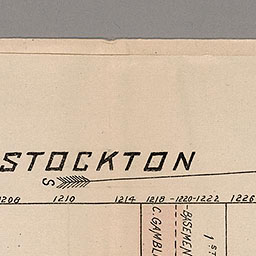 STOCKTON
S
1208 1210 1214 1218 -1220-1222 1226
C. GAMBL
-BASEMEN
1ST